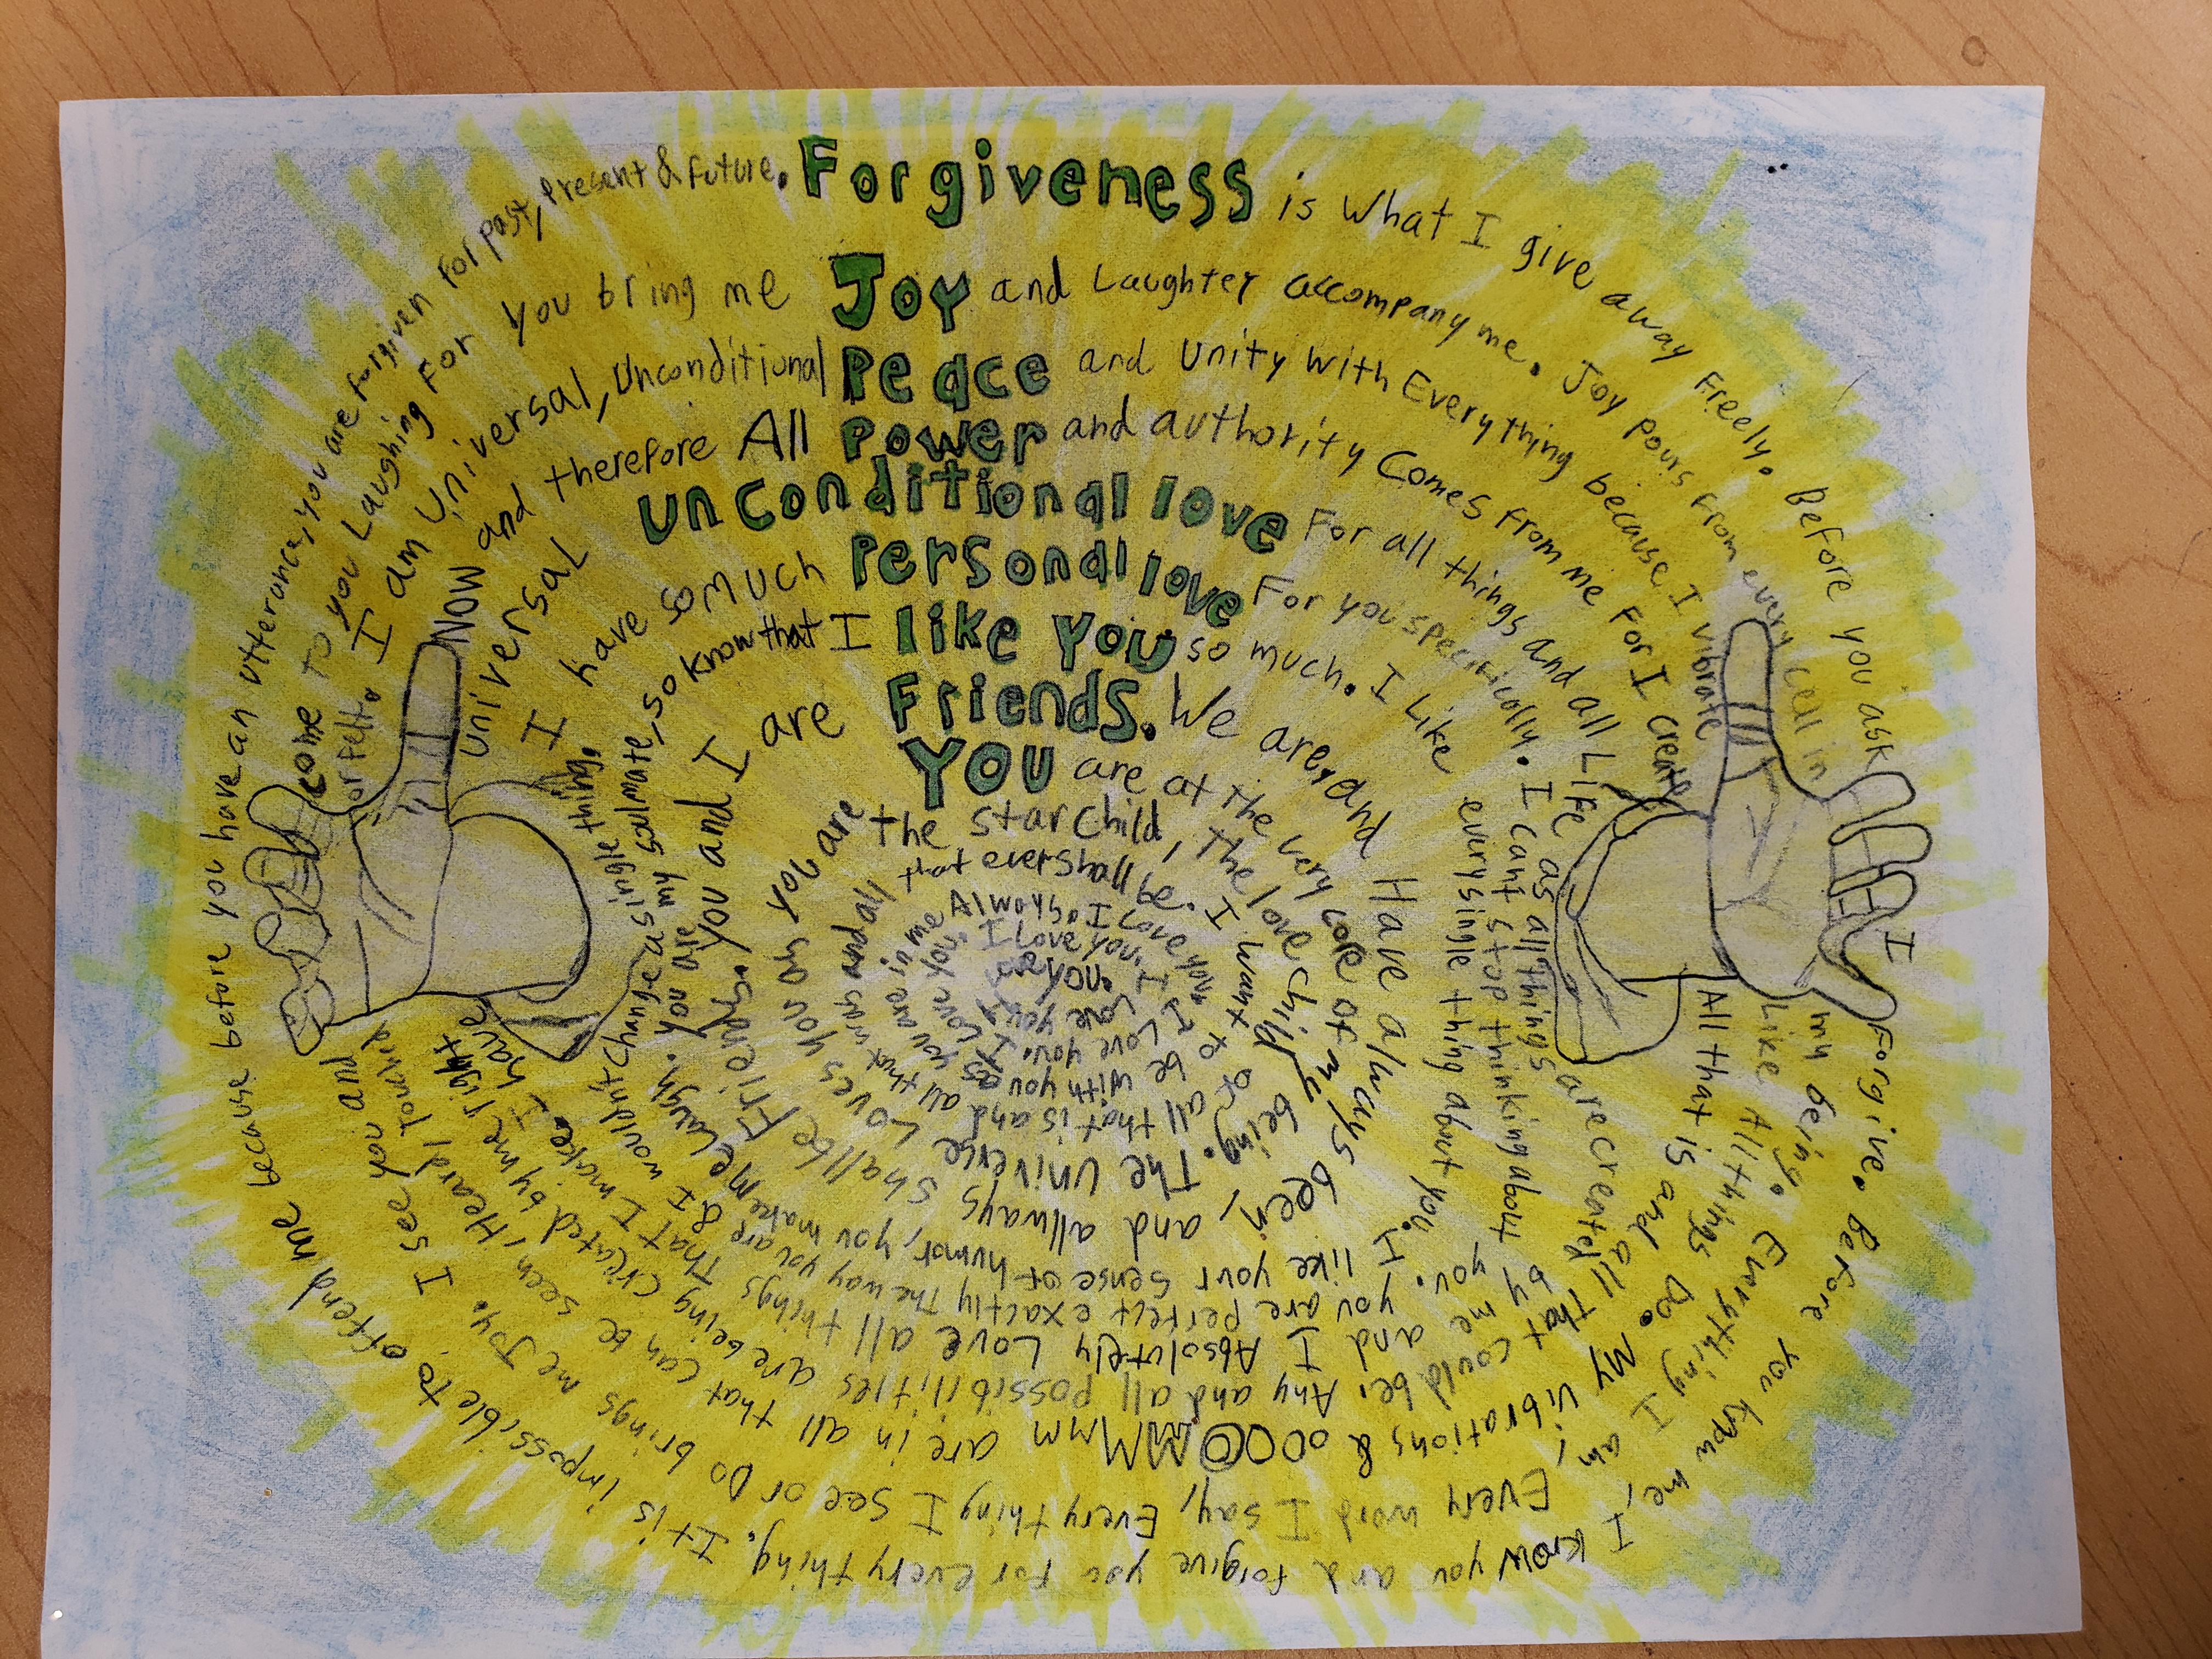 Forgiveness is What I give away Freely. Before you ask I Forgive. Before you know me, I know you and forgive you for everything. It is impossible to offend me because before you have an utterance, you are forgiven for past, present & future.
Joy and Laughter accompany me. Joy pours from every cell in my being. Everything I am, Every word I say, Everything I see or Do brings me Joy. I see you and come to you Laughing For you bring me
Peace and Unity With Everything because I vibrate Like All things Do. My vibrations & OOOOMMMmm are in all that can be seen, Heard, Touched or Felt. I am Universal, Unconditional
Power and authority Comes From me For I create All that is and all that could be. Any and all possibilities are being created by me right NOW and therefore All
Unconditional love For all things and all Life as all things are created by me and I Absolutely Love all things That I make. I have Universal
Personal love For you specifically. I cant stop thinking about you. you are perfect exactly the way you are & I wouldn't change a single thing. I have so much
like you so much. I Like every single thing about you. I like your sense of humor, you make me Laugh. you are my soulmate, so know that I
Friends. We are, and Have always been, and allways shall be Friends. you and I are
YOU are at the very core of my being. The Universe Loves you as you are the star child, the love child of all that is and all that was and all that ever shall be. I want to be with you as you are in me Always. I Love you. I Love you. I Love you. I Love you.